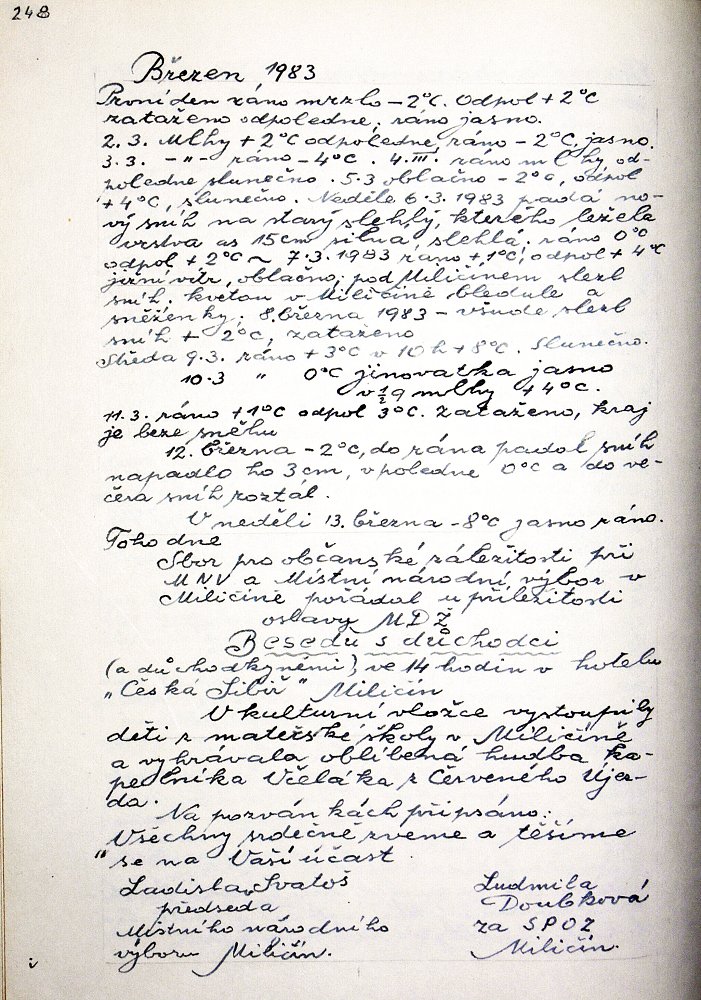 248
Březen 1983
První den ráno mrzlo -2°C. Odpol +2°C
zataženo odpoledne, ráno jasno.
2.3. Mlhy +2°C odpoledne, ráno -2°C, jasno.
3.3. -"- ráno -4°C. 4.III. ráno mlhy, od-
poledne slunečno. 5.3 oblačno -2°C, odpol
+4°C, slunečno. Neděle 6.3.1983 padá no-
vý sníh na starý slehlý, kterého ležela
vrstva as 15cm silná, slehlá. ráno 0°C
odpol +2°C ~ 7.3.1983 ráno +1°C, odpol +4°C
jižní vítr, oblačno, pod Miličínem slezl
sníh. kvetou v Miličíně bledule a
sněženky. 8. března 1983 - všude slezl
sníh + 2°C, zataženo
Středa 9.3. ráno +3°C v 10h +8°C. Slunečno.
10.3 " 0°C jinovatka jasno
v ½9 mlhy +4°C.
11.3. ráno +1°C odpol 3°C. Zataženo, kraj
je beze sněhu
12. března -2°C, do rána padal sníh
napadlo ho 3cm, v poledne 0°C a do ve-
čera sníh roztál.
V neděli 13. března -8°C jasno ráno.
Toho dne
Sbor pro občanské záležitosti při
MNV a Místní národní výbor v
Miličíně pořádal u příležitosti
oslavy MDŽ
Besedu s důchodci
(a důchodkyněmi) ve 14 hodin v hotelu
"Česká Sibiř" Miličín
V kulturní vložce vystoupily
děti z mateřské školy v Miličíně
a vyhrávala oblíbená hudba ka-
pelníka Včeláka z Červeného Újez-
da.
Na pozvánkách připsáno:
Všechny srdečně zveme a těšíme
"se na Vaší účast.
Ladislav Svatoš
předseda
Místního národního
výboru Miličín.
Ludmila
Doubková
za SPOZ
Miličín.